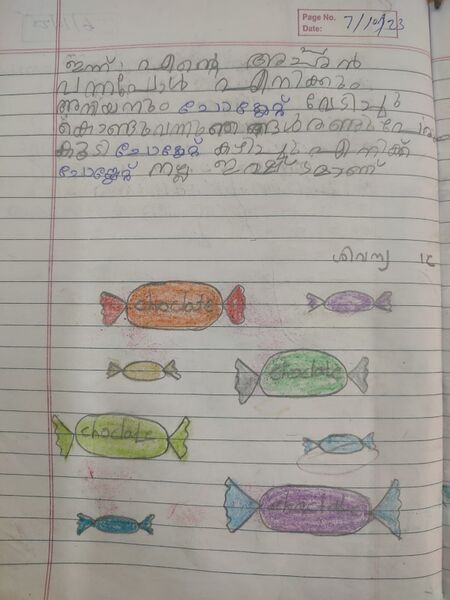 Page No.
Date: 7/10/23
ഇന്ന് എന്റെ അച്ഛൻ
വന്നപ്പോൾ എനിക്കും
അനിയനും ചോക്ലേറ്റ് മേടിച്ചു
കൊണ്ടുവന്നു ഞങ്ങൾ രണ്ടുപേരും
കൂടി ചോക്ലേറ്റ് കഴിച്ചു എനിക്ക്
ചോക്ലേറ്റ് നല്ല ഇഷ്ടമാണ്
ശിവന്യ 1C
choclate
choclate
choclate
choclate